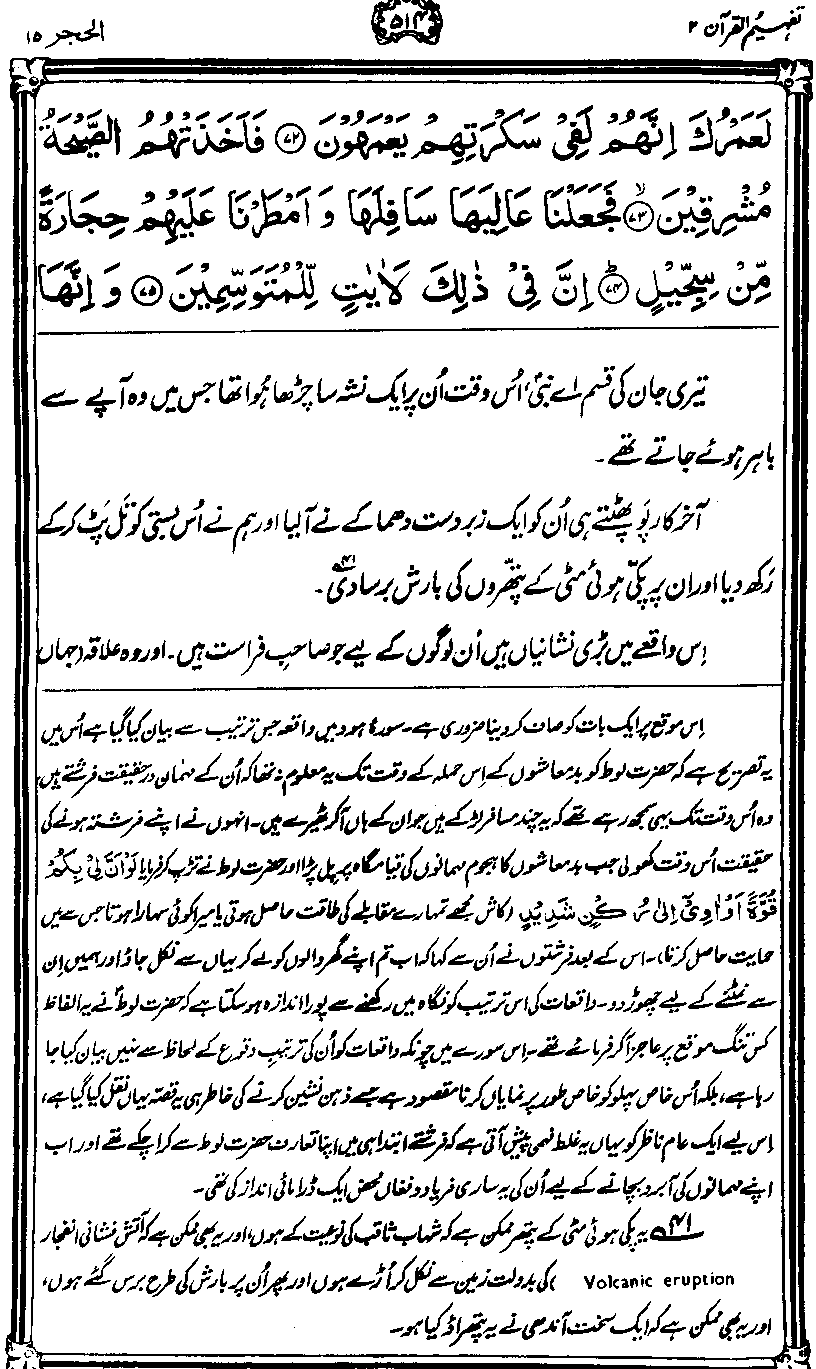 تفہیم القرآن ۲
۵۱۴
الحجر ۱۵
لَعَمْرُكَ اِنَّهُمْ لَفِیْ سَكْرَتِهِمْ یَعْمَهُوْنَ ﴿۷۲﴾ فَاَخَذَتْهُمُ الصَّیْحَةُ
مُشْرِقِیْنَ ﴿۷۳﴾ۙ فَجَعَلْنَا عَالِیَهَا سَافِلَهَا وَ اَمْطَرْنَا عَلَیْهِمْ حِجَارَةً
مِّنْ سِجِّیْلٍ ﴿۷۴﴾ؕ اِنَّ فِیْ ذٰلِكَ لَاٰیٰتٍ لِّلْمُتَوَسِّمِیْنَ ﴿۷۵﴾ وَ اِنَّهَا
تیری جان کی قسم اے نبیؐ، اُس وقت اُن پر ایک نشہ سا چڑھا ہُوا تھا جس میں وہ آپے سے
باہر ہوئے جاتے تھے۔
آخرکار پَو پھٹتے ہی اُن کو ایک زبردست دھماکے نے آلیا اور ہم نے اُس بستی کو تَل پَٹ کر کے
رکھ دیا اور ان پر پکّی ہوئی مٹی کے پتھّروں کی بارش برسا دی۴۱۔
اِس واقعے میں بڑی نشانیاں ہیں اُن لوگوں کے لیے جو صاحبِ فراست ہیں۔ اور وہ علاقہ (جہاں
اِس موقع پر ایک بات کو صاف کر دینا ضروری ہے۔ سورۂ ہود میں واقعہ جس ترتیب سے بیان کیا گیا ہے اُس میں
یہ تصریح ہے کہ حضرت لوط کو بدمعاشوں کے اِس حملہ کے وقت تک یہ معلوم نہ تھا کہ اُن کے مہمان درحقیقت فرشتے ہیں
وہ اُس وقت تک یہی سمجھ رہے تھے کہ یہ چند مسافر لڑکے ہیں جو ان کے ہاں آکر ٹھیرے ہیں۔ انہوں نے اپنے فرشتہ ہونے کی
حقیقت اُس وقت کھولی جب بدمعاشوں کا ہجوم مہمانوں کی قیام گاہ پر پل پڑا اور حضرت لوط نے تڑپ کر فرمایا لَوْ اَنَّ لِیْ بِكُمْ
قُوَّةً اَوْ اٰوِیْۤ اِلٰی رُكْنٍ شَدِیْدٍ (کاش مجھے تمہارے مقابلے کی طاقت حاصل ہوتی یا میرا کوئی سہارا ہوتا جس سے میں
حمایت حاصل کرتا)۔ اس کے بعد فرشتوں نے اُن سے کہا کہ اب تم اپنے گھر والوں کو لے کر یہاں سے نکل جاؤ اور ہمیں اِن
سے نمٹنے کے لیے چھوڑ دو۔ واقعات کی اس ترتیب کو نگاہ میں رکھنے سے پورا اندازہ ہوسکتا ہے کہ حضرت لوطؑ نے یہ الفاظ
کس تنگ موقع پر عاجز آکر فرمائے تھے۔ اِس سورے میں چونکہ واقعات کو اُن کی ترتیبِ وقوع کے لحاظ سے نہیں بیان کیا جا
رہا ہے، بلکہ اُس خاص پہلو کو خاص طور پر نمایاں کرنا مقصود ہے جسے ذہن نشین کرنے کی خاطر ہی یہ قصّہ یہاں نقل کیا گیا ہے،
اِس لیے ایک عام ناظر کو یہاں یہ غلط فہمی پیش آتی ہے کہ فرشتے ابتدا ہی میں اپنا تعارف حضرت لوط سے کرا چکے تھے اور اب
اپنے مہمانوں کی آبرو بچانے کے لیے اُن کی یہ ساری فریاد و فغاں محض ایک ڈرامائی انداز کی تھی۔
۴۱؎ یہ پکی ہوئی مٹی کے پتھر ممکن ہے کہ شہاب ثاقب کی نوعیت کے ہوں، اور یہ بھی ممکن ہے کہ آتش فشانی انفجار
Volcanic eruption) کی بدولت زمین سے نکل کر اُڑے ہوں اور پھر اُن پر بارش کی طرح برس گئے ہوں،
اور یہ بھی ممکن ہے کہ ایک سخت آندھی نے یہ پتھراؤ کیا ہو۔